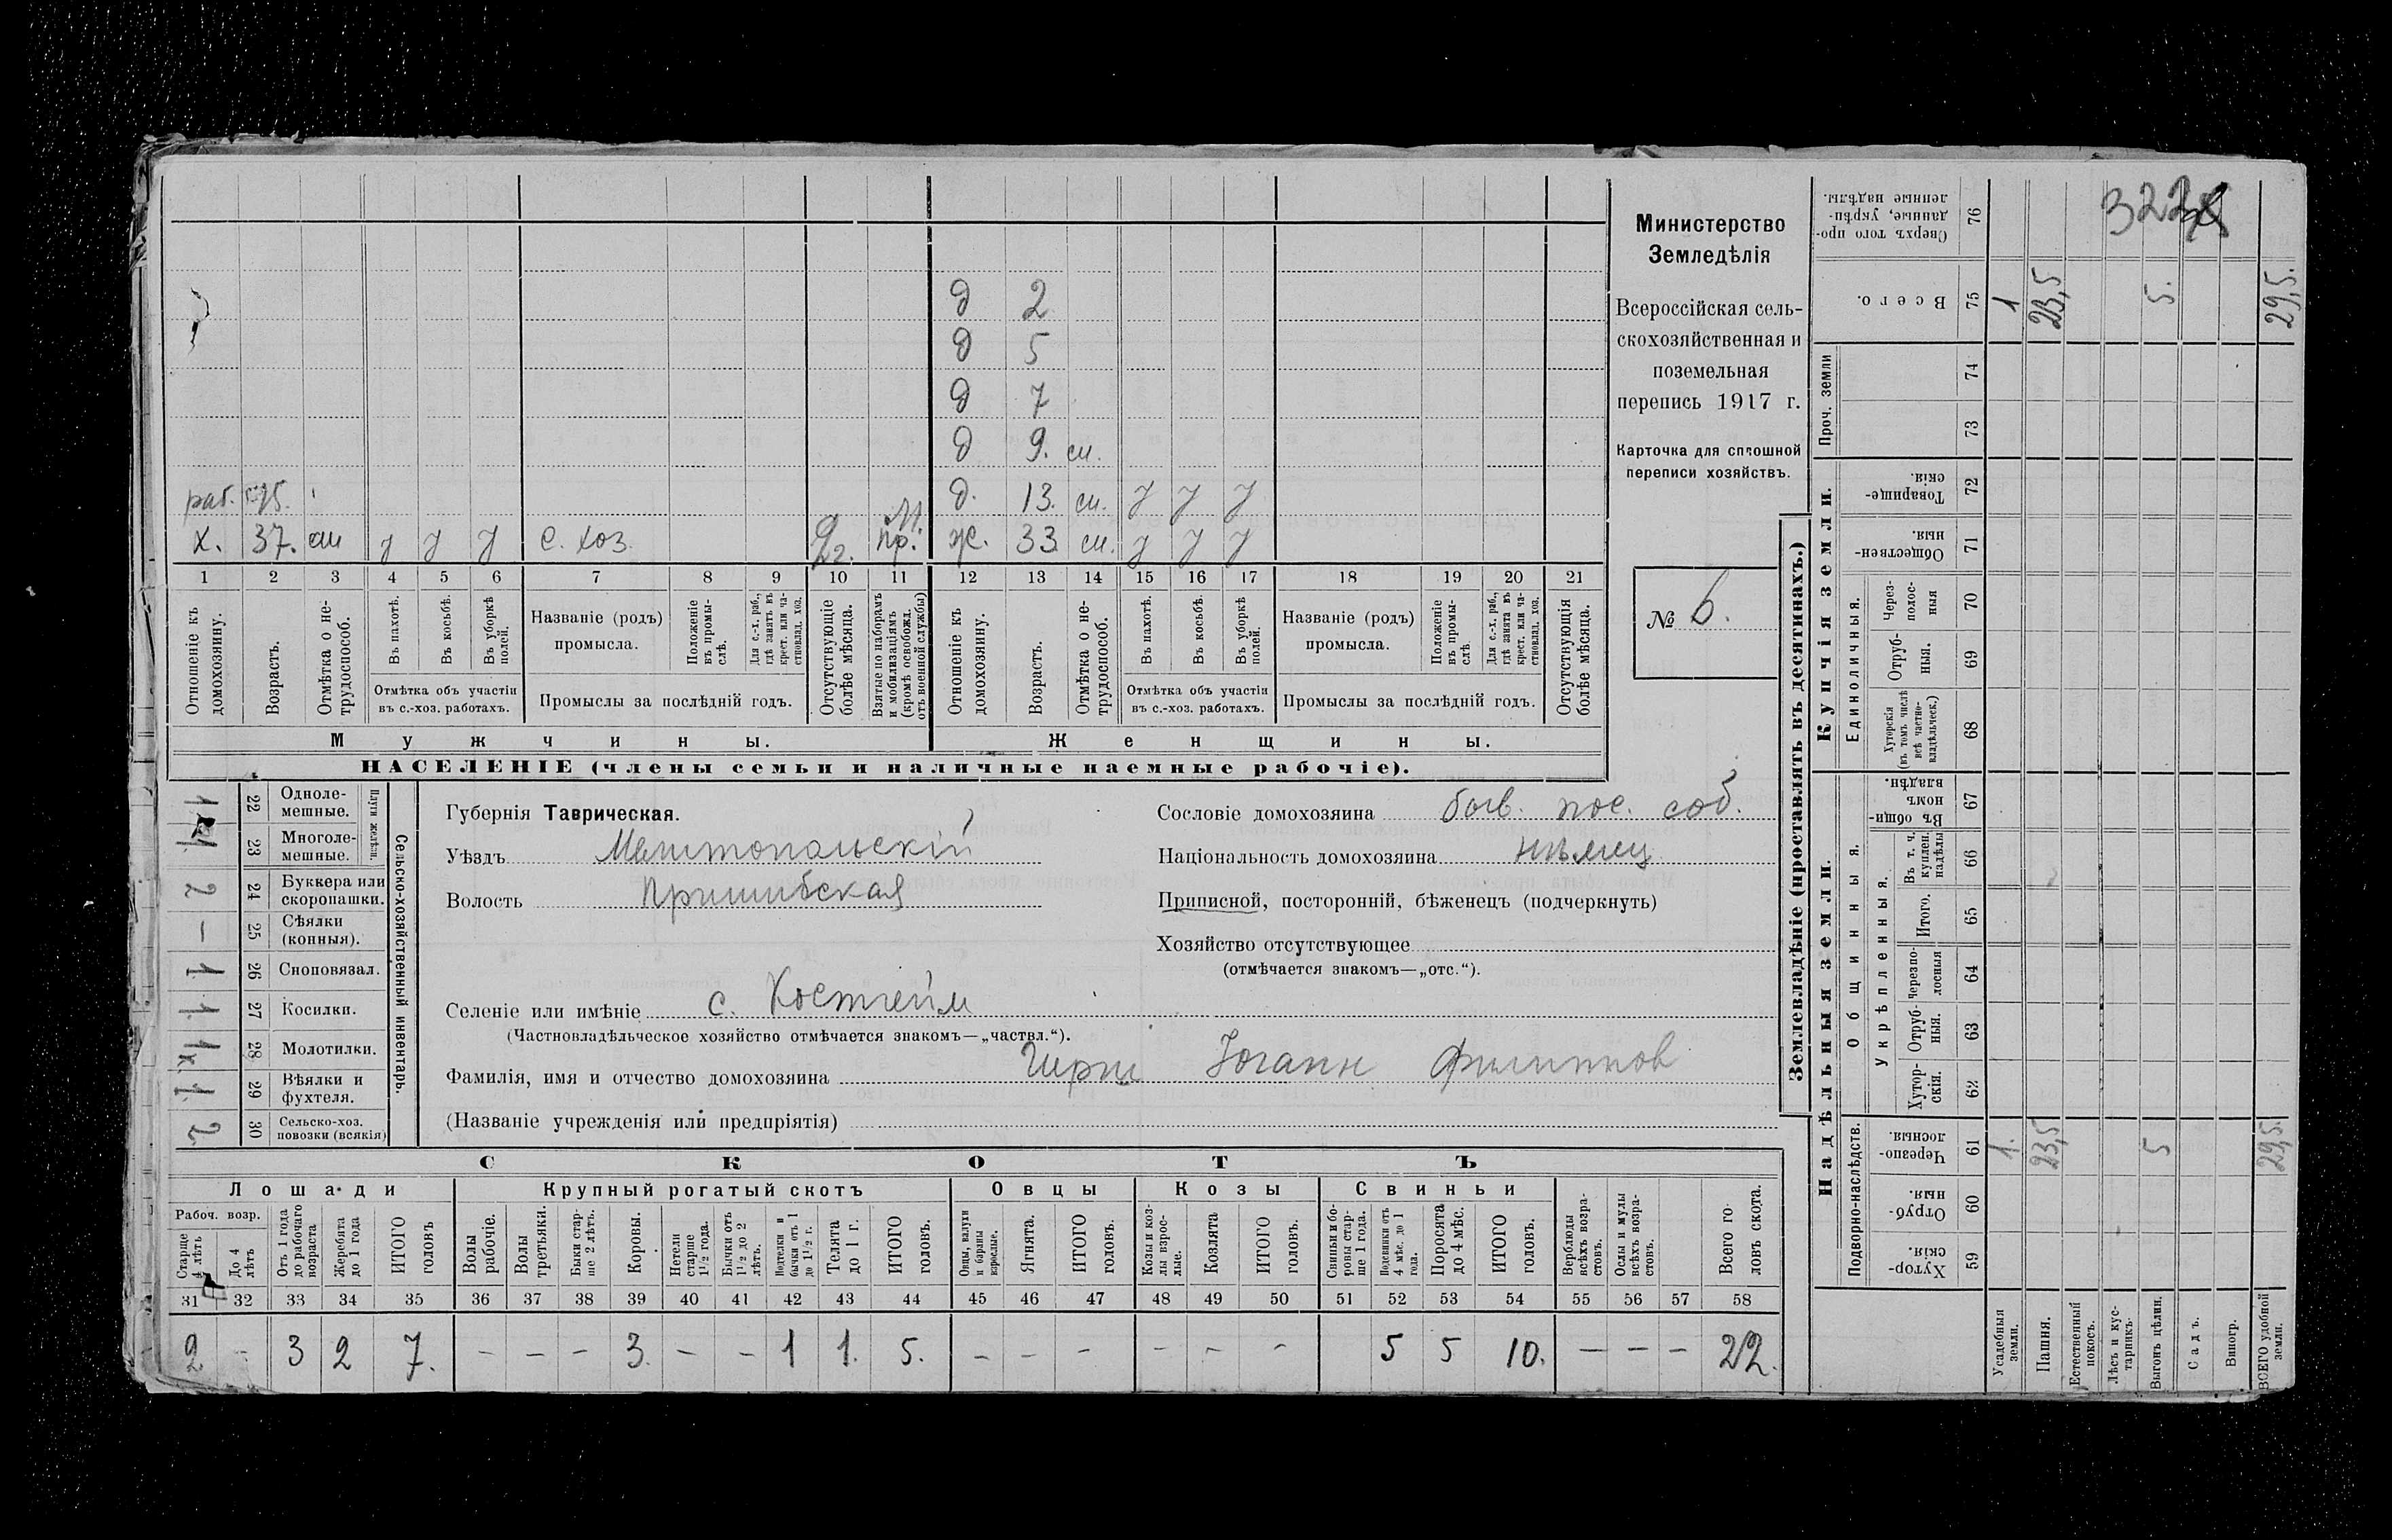 3222
Министерство
Земледѣлія
Всероссійская сель-
скохозяйственная и
поземельная
перепись 1917 г.
Карточка для сплошной
переписи хозяйствъ.
№ 6.
д 2
д 5
д 7
д 9. сп.
раб. 75. д. 13. сп. у у у
х. 37. сп у у у с. хоз. 2г. пр. ж. 33 сп. у у у
1 2 3 4 5 6 7 8 9 10 11 12 13 14 15 16 17 18 19 20 21
Отношеніе къ домохозяину.
Возрастъ.
Отмѣтка о не-трудоспособ.
Въ пахотѣ.
Въ косьбѣ.
Въ уборкѣ полей.
Отмѣтка объ участіи
въ с.-хоз. работахъ.
Названіе (родъ)
промысла.
Положеніе въ промы-слѣ.
Для с.-х. раб., гдѣ занятъ въ крест. или ча-стновлад. хоз.
Промыслы за послѣдній годъ.
Отсутствующіе болѣе мѣсяца.
Взятые по наборамъ и мобилизаціямъ (кромѣ освобожд. отъ военной службы)
Отношеніе къ домохозяину.
Возрастъ.
Отмѣтка о не-трудоспособ.
Въ пахотѣ.
Въ косьбѣ.
Въ уборкѣ полей.
Отмѣтка объ участіи
въ с.-хоз. работахъ.
Названіе (родъ)
промысла.
Положеніе въ промы-слѣ
Для с.-х. раб., гдѣ занята въ крест. или ча-стновлад. хоз.
Промыслы за послѣдній годъ.
Отсутствующія болѣе мѣсяца.
Мужчины. Женщины.
НАСЕЛЕНІЕ (члены семьи и наличные наемные рабочіе).
Сельско-хозяйственный инвентарь.
Плуги желѣзн.
22 Одноле-мешные. 1
23 Многоле-мешные. 1
24 Буккера или скоропашки. 2
25 Сѣялки (конныя). —
26 Сноповязал. 1
27 Косилки. 1
28 Молотилки. 1к
29 Вѣялки и фухтеля. 1
30 Сельско-хоз. повозки (всякія) 2
Губернія Таврическая.
Уѣздъ Мелитопольскій
Волость Пришибская
Сословіе домохозяина быв. пос. соб.
Національность домохозяина нѣмец
Приписной, посторонній, бѣженецъ (подчеркнуть)
Хозяйство отсутствующее
(отмѣчается знакомъ—„отс.“).
Селеніе или имѣніе с. Костгейм
(Частновладѣльческое хозяйство отмѣчается знакомъ—„частвл.“).
Фамилія, имя и отчество домохозяина Гирш Іоганн Филиппов
(Названіе учрежденія или предпріятія)
СКОТЪ
Лошади Крупный рогатый скотъ Овцы Козы Свиньи
Рабоч. возр.
Старше 4 лѣтъ
До 4 лѣтъ
Отъ 1 года до рабочаго возраста
Жеребята до 1 года
ИТОГО головъ
Волы рабочіе.
Волы третьяки.
Быки стар-ше 2 лѣтъ.
Коровы.
Нетели старше 1½ года.
Бычки отъ 1½ до 2 лѣтъ.
Подтелки и бычки отъ 1 до 1½ г.
Телята до 1 г.
ИТОГО головъ.
Овцы, валухи и бараны взрослые.
Ягнята.
ИТОГО головъ.
Козы и коз-лы взрос-лые.
Козлята
ИТОГО головъ.
Свиньи и бо-ровы стар-ше 1 года.
Подсвинки отъ 4 мѣс. до 1 года.
Поросята до 4 мѣс.
ИТОГО головъ.
Верблюды всѣхъ возра-стовъ.
Ослы и мулы всѣхъ возра-стовъ.
Всего го-ловъ скота.
31 32 33 34 35 36 37 38 39 40 41 42 43 44 45 46 47 48 49 50 51 52 53 54 55 56 57 58
2 - 3 2 7. - - - 3. - - 1 1. 5. - - - - - - 5 5 10. - - - 22.
Землевладѣніе (проставлять въ десятинахъ.)
Надѣльныя земли. Купчія земли.
Подворно-наслѣдств.
Общинныя.
Укрѣпленныя.
Единоличныя.
Проч. земли
Хутор-скія. 59
Отруб-ныя. 60
Черезпо-лосныя. 61
Хутор-скія. 62
Отруб-ныя. 63
Черезпо-лосныя 64
Итого. 65
Въ т. ч. куплен. надѣлы 66
Въ общин-номъ владѣн. 67
Хуторскія (въ томъ числѣ всѣ частно-владѣльческ.) 68
Отруб-ныя. 69
Через-полос-ныя 70
Обществен-ныя. 71
Товарище-скія. 72
73
74
Всего. 75
Сверхъ того про-данные, укрѣп-ленные надѣлы. 76
Усадебныя земли. 1. 1
Пашня. 23,5 23,5
Естественный покосъ.
Лѣсъ и кус-тарникъ.
Выгонъ цѣлин. 5 5.
Садъ.
Виногр.
ВСЕГО удобной земли. 29,5. 29,5.